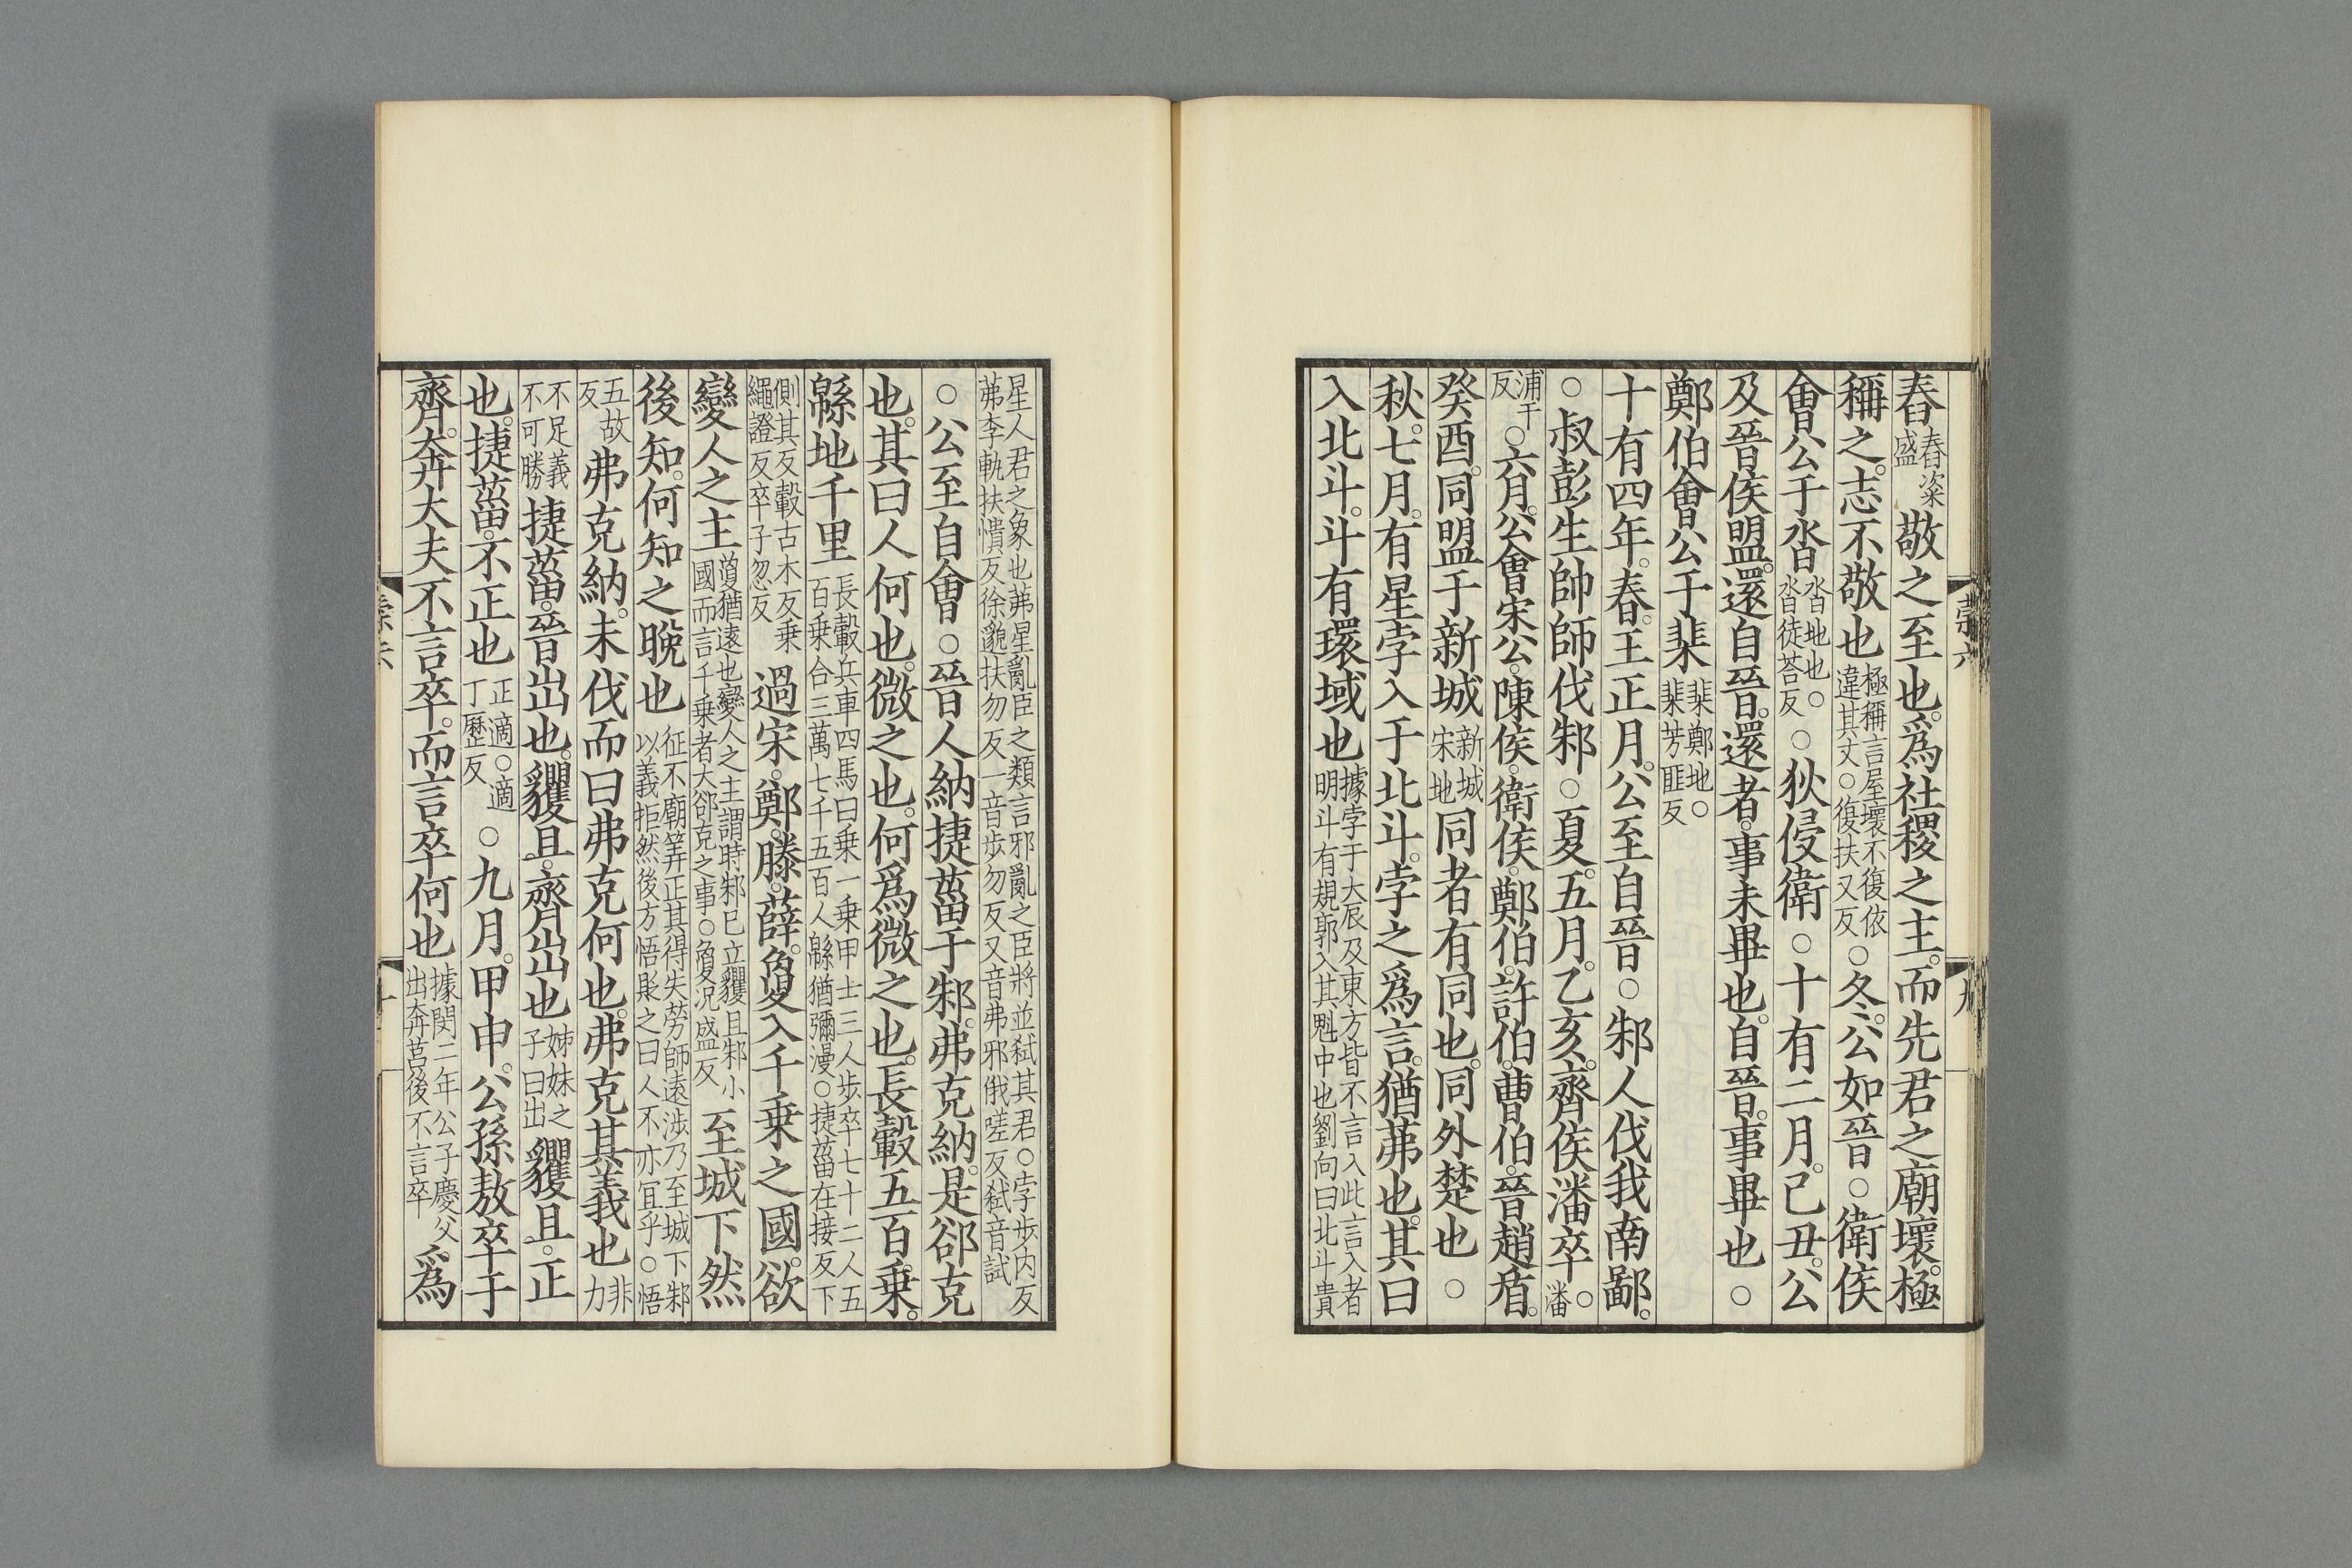 舂舂粢盛敬之至也。爲社稷之主。而先君之廟壞。極
稱之。志不敬也極稱言屋壞不復依違其文○復扶又反○冬。公如晉○衛侯
會公于沓沓地也○沓徒荅反○狄侵衛○十有二月。己丑。公
及晉侯盟。還自晉。還者。事未畢也。自晉。事畢也○
鄭伯會公于棐棐鄭地○棐芳匪反
十有四年。春。王正月。公至自晉○邾人伐我南鄙。
○叔彭生帥師伐邾○夏。五月。乙亥。齊侯潘卒○潘
浦干反○六月。公會宋公。陳侯。衛侯。鄭伯。許伯。曹伯。晉趙盾。
癸酉。同盟于新城新城宋地同者有同也。同外楚也○
秋。七月。有星孛入于北斗。孛之爲言。猶茀也。其曰
入北斗。斗有環域也據孛于大辰及東方皆不言入此言入者明斗有規郭入其魁中也劉向曰北斗貴
星人君之象也茀星亂臣之類言邪亂之臣將並弑其君○孛步内反茀李軌扶憒反徐邈扶勿反一音步勿反又音弗邪俄嗟反弑音試
○公至自會○晉人納捷菑于邾。弗克納。是郤克
也。其曰人何也。微之也。何爲微之也。長轂五百乗。
緜地千里長轂兵車四馬曰乗一乗甲士三人歩卒七十二人五百乗合三萬七千五百人緜猶彌漫○捷菑在接反下
側其反轂古木反乗繩證反卒子忽反過宋。鄭。滕。薛。敻入千乗之國。欲
變人之主敻猶遠也變人之主謂時邾已立貜且邾小國而言千乗者大郤克之事○敻况盛反至城下然
後知。何知之晚也征不廟筭正其得失勞師遠涉乃至城下邾以義拒然後方悟貶之曰人不亦宜乎○悟
五故反弗克納。未伐而曰弗克何也。弗克其義也非力
不足義不可勝捷菑。晉出也。貜且。齊出也姊妹之子曰出貜且。正
也。捷菑。不正也正適○適丁歷反○九月。甲申。公孫敖卒于
齊。奔大夫不言卒。而言卒何也據閔二年公子慶父出奔莒後不言卒爲